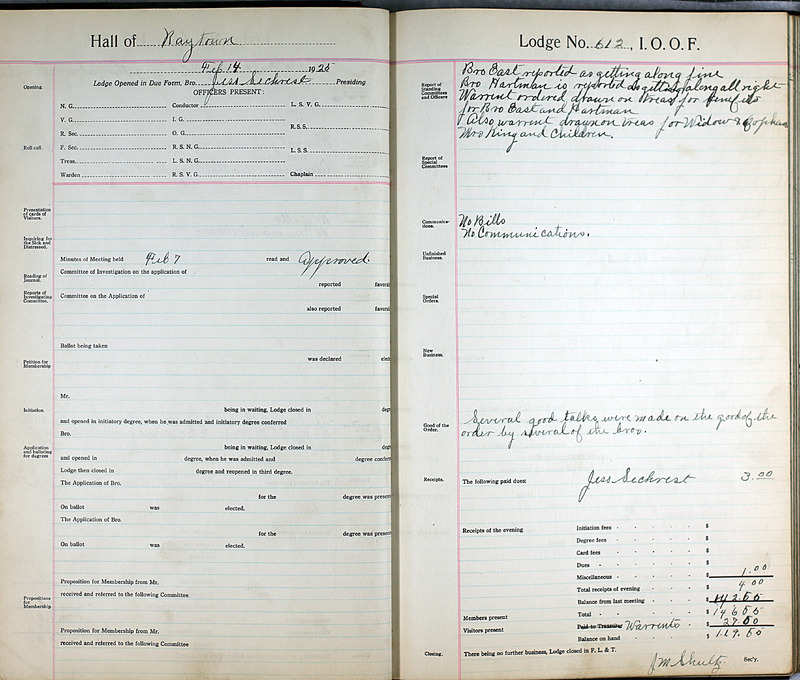 Hall of Raytown
Feb 14 1925
Lodge Opened in Due Form, Bro. Jess Sechrest Presiding
OFFICERS PRESENT:
Opening
N. G. Conductor L. S. V. G.
V. G. I. G.
R. Sec. O. G. R. S. S.
Roll call
F. Sec. R. S. N. G. L. S. S.
Treas. L. S. N. G.
Warden R. S. V. G. Chaplain
Presentation of cards of Visitors.
Inquiring for the Sick and Distressed.
Minutes of Meeting held Feb 7 read and approved.
Reading of Journal.
Committee of Investigation on the application of
reported favor
Reports of Investigating Committee.
Committee on the Application of
also reported favor
Ballot being taken
Petition for Membership
was declared elec
Mr.
Initiation.
being in waiting, Lodge closed in deg
and opened in initiatory degree, when he was admitted and initiatory degree conferred
Bro.
Application and balloting for degrees
being in waiting, Lodge closed in deg
and opened in degree, when he was admitted and degree confer
Lodge then closed in degree and reopened in third degree.
The Application of Bro.
for the degree was presen
On ballot was elected.
The Application of Bro.
for the degree was presen
On ballot was elected.
Propositions for Membership
Proposition for Membership from Mr.
received and referred to the following Committee
Proposition for Membership from Mr.
received and referred to the following Committee
Lodge No. 612, I. O. O. F.
Report of Standing Committees and Officers
Bro East reported as getting along fine
Bro Hartman is reported as getting along all right
Warrent ordered drawn on treas for benefits
for Bro East and Hartman
Also warrent drawn on treas for Widow & orphans
Mrs King and Children.
Report of Special Committees
Communications.
No Bills
No Communications.
Unfinished Business.
Special Orders.
New Business.
Good of the Order.
Several good talks were made on the good of the
order by several of the bros.
Receipts.
The following paid dues: Jess Sechrest 3.00
Receipts of the evening
Initiation fees $
Degree fees $
Card fees $
Dues $
Miscellaneous $ 1.00
Total receipts of evening $ 4.00
Balance from last meeting $ 142.55
Members present
Total $ 146.55
Visitors present
Paid to Treasurer Warrents $ 27.00
Balance on hand $ 119.55
Closing.
There being no further business, Lodge closed in F. L. & T.
J M Shultz Sec'y.